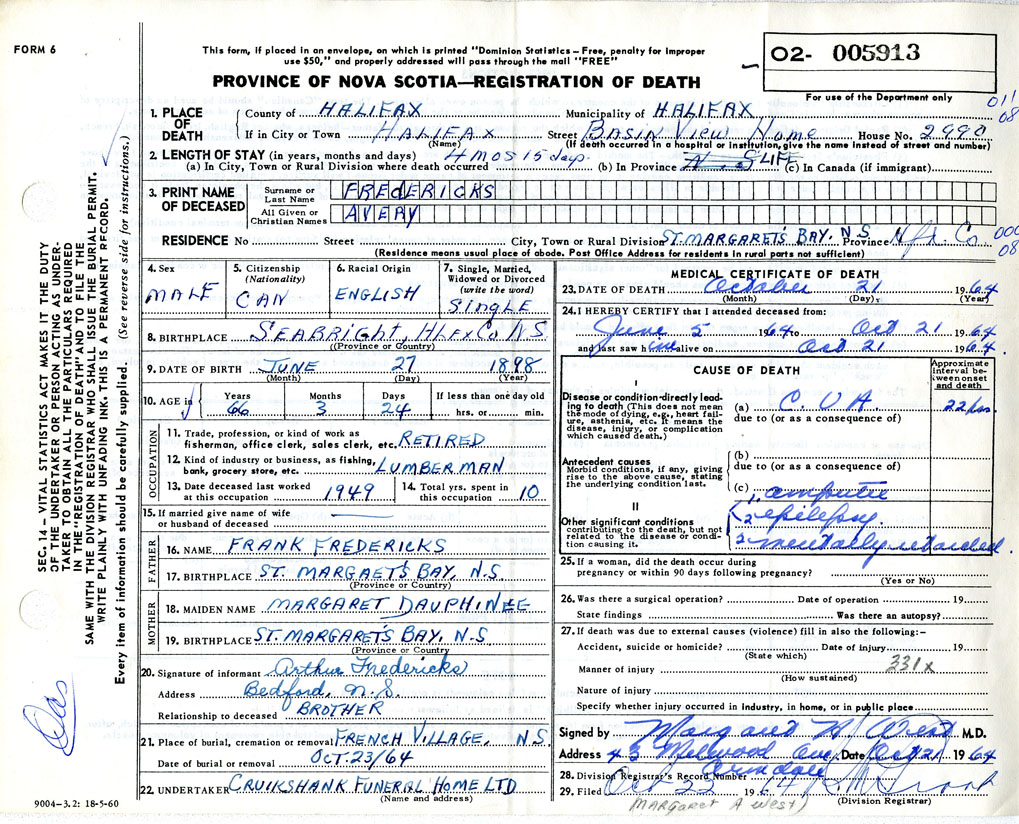 FORM 6
This form, if placed in an envelope, on which is printed "Dominion Statistics – Free, penalty for improper
use $50," and properly addressed will pass through the mail "FREE"
PROVINCE OF NOVA SCOTIA—REGISTRATION OF DEATH
O2- 005913
For use of the Department only
011
08
1. PLACE OF DEATH
County of HALIFAX Municipality of HALIFAX
If in City or Town HALIFAX Street Basin View Home House No. 2990
(Name) (If death occurred in a hospital or institution, give the name instead of street and number)
2. LENGTH OF STAY (in years, months and days) 4 mos 15 days LIFE
(a) In City, Town or Rural Division where death occurred (b) In Province N.S (c) In Canada (if immigrant)
3. PRINT NAME OF DECEASED
Surname or Last Name FREDERICKS
All Given or Christian Names AVERY
RESIDENCE No Street City, Town or Rural Division ST. MARGARETS BAY, N S Province Hfx. Co
000
08
(Residence means usual place of abode. Post Office Address for residents in rural parts not sufficient)
4. Sex MALE
5. Citizenship (Nationality) CAN
6. Racial Origin ENGLISH
7. Single, Married, Widowed or Divorced (write the word) SINGLE
8. BIRTHPLACE SEABRIGHT, HLFX Co N.S.
(Province or Country)
9. DATE OF BIRTH JUNE 27 1898
(Month) (Day) (Year)
10. AGE in Years Months Days If less than one day old
66 3 24 hrs. or min.
OCCUPATION
11. Trade, profession, or kind of work as
fisherman, office clerk, sales clerk, etc. RETIRED
12. Kind of industry or business, as fishing,
bank, grocery store, etc. LUMBERMAN
13. Date deceased last worked at this occupation 1949
14. Total yrs. spent in this occupation 10
15. If married give name of wife
or husband of deceased
FATHER
16. NAME FRANK FREDERICKS
17. BIRTHPLACE ST. MARGAETS BAY, N.S.
(Province or Country)
MOTHER
18. MAIDEN NAME MARGARET DAUPHINEE
19. BIRTHPLACE ST. MARGARETS BAY, N.S
(Province or Country)
20. Signature of informant Arthur Fredericks
Address Bedford, N.S.
Relationship to deceased BROTHER
21. Place of burial, cremation or removal FRENCH VILLAGE, N S.
Date of burial or removal OCT. 23/64
22. UNDERTAKER CRUIKSHANK FUNERAL HOME LTD
(Name and address)
MEDICAL CERTIFICATE OF DEATH
23. DATE OF DEATH October 21 1964
(Month) (Day) (Year)
24. I HEREBY CERTIFY that I attended deceased from:
June 5 1964 to Oct 21 1964
and last saw him alive on Oct 21 1964.
CAUSE OF DEATH
Approximate interval between onset and death
I
Disease or condition directly leading to death (This does not mean the mode of dying, e.g., heart failure, asthenia, etc. It means the disease, injury, or complication which caused death.)
(a) C.V.A. 22 hrs.
due to (or as a consequence of)
Antecedent causes
Morbid conditions, if any, giving rise to the above cause, stating the underlying condition last.
(b)
due to (or as a consequence of)
(c)
II
Other significant conditions contributing to the death, but not related to the disease or condition causing it.
1. amputee
2 epilepsy.
mentally retarded.
25. If a woman, did the death occur during
pregnancy or within 90 days following pregnancy?
(Yes or No)
26. Was there a surgical operation? Date of operation 19
State findings Was there an autopsy?
27. If death was due to external causes (violence) fill in also the following:–
Accident, suicide or homicide? Date of injury 19
(State which)
331x
Manner of injury
(How sustained)
Nature of injury
Specify whether injury occurred in industry, in home, or in public place
Signed by Margaret A. West M.D.
Address 43 Melwood Ave, Date Oct 21 1964
Armdale
28. Division Registrar's Record Number
29. Filed Oct 22 1964
(Division Registrar)
MARGARET A WEST)
SEC. 14 – VITAL STATISTICS ACT MAKES IT THE DUTY
OF THE UNDERTAKER OR PERSON ACTING AS UNDER-
TAKER TO OBTAIN ALL THE PARTICULARS REQUIRED
IN THE "REGISTRATION OF DEATH" AND TO FILE THE
SAME WITH THE DIVISION REGISTRAR WHO SHALL ISSUE THE BURIAL PERMIT.
WRITE PLAINLY WITH UNFADING INK. THIS IS A PERMANENT RECORD.
Every item of information should be carefully supplied. (See reverse side for instructions.)
9004-3.2: 18-5-60